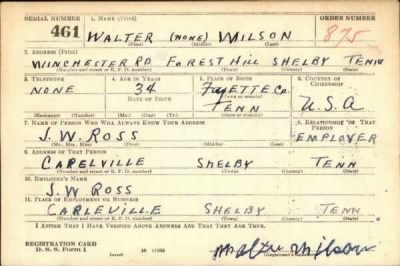 SERIAL NUMBER 1. NAME (Print) ORDER NUMBER
461 WALTER (NONE) WILSON 875
(First) (Middle) (Last)
2. ADDRESS (Print)
WINCHESTER RD FOREST HILL SHELBY TENN
(Number and street or R. F. D. number) (Town) (County) (State)
3. TELEPHONE 4. AGE IN YEARS 5. PLACE OF BIRTH 6. COUNTRY OF CITIZENSHIP
NONE 34 FAYETTE CO.
DATE OF BIRTH (Town or county)
TENN U.S.A
(Exchange) (Number) (Mo.) (Day) (Yr.) (State or country)
7. NAME OF PERSON WHO WILL ALWAYS KNOW YOUR ADDRESS 8. RELATIONSHIP OF THAT PERSON
J.W. ROSS EMPLOYER
(Mr., Mrs., Miss) (First) (Middle) (Last)
9. ADDRESS OF THAT PERSON
CAPELVILLE SHELBY TENN
(Number and street or R. F. D. number) (Town) (County) (State)
10. EMPLOYER'S NAME
J.W ROSS
11. PLACE OF EMPLOYMENT OR BUSINESS
CARLEVILLE SHELBY TENN
(Number and street or R. F. D. number) (Town) (County) (State)
I AFFIRM THAT I HAVE VERIFIED ABOVE ANSWERS AND THAT THEY ARE TRUE.
REGISTRATION CARD
D. S. S. Form 1
(Registrant's signature)